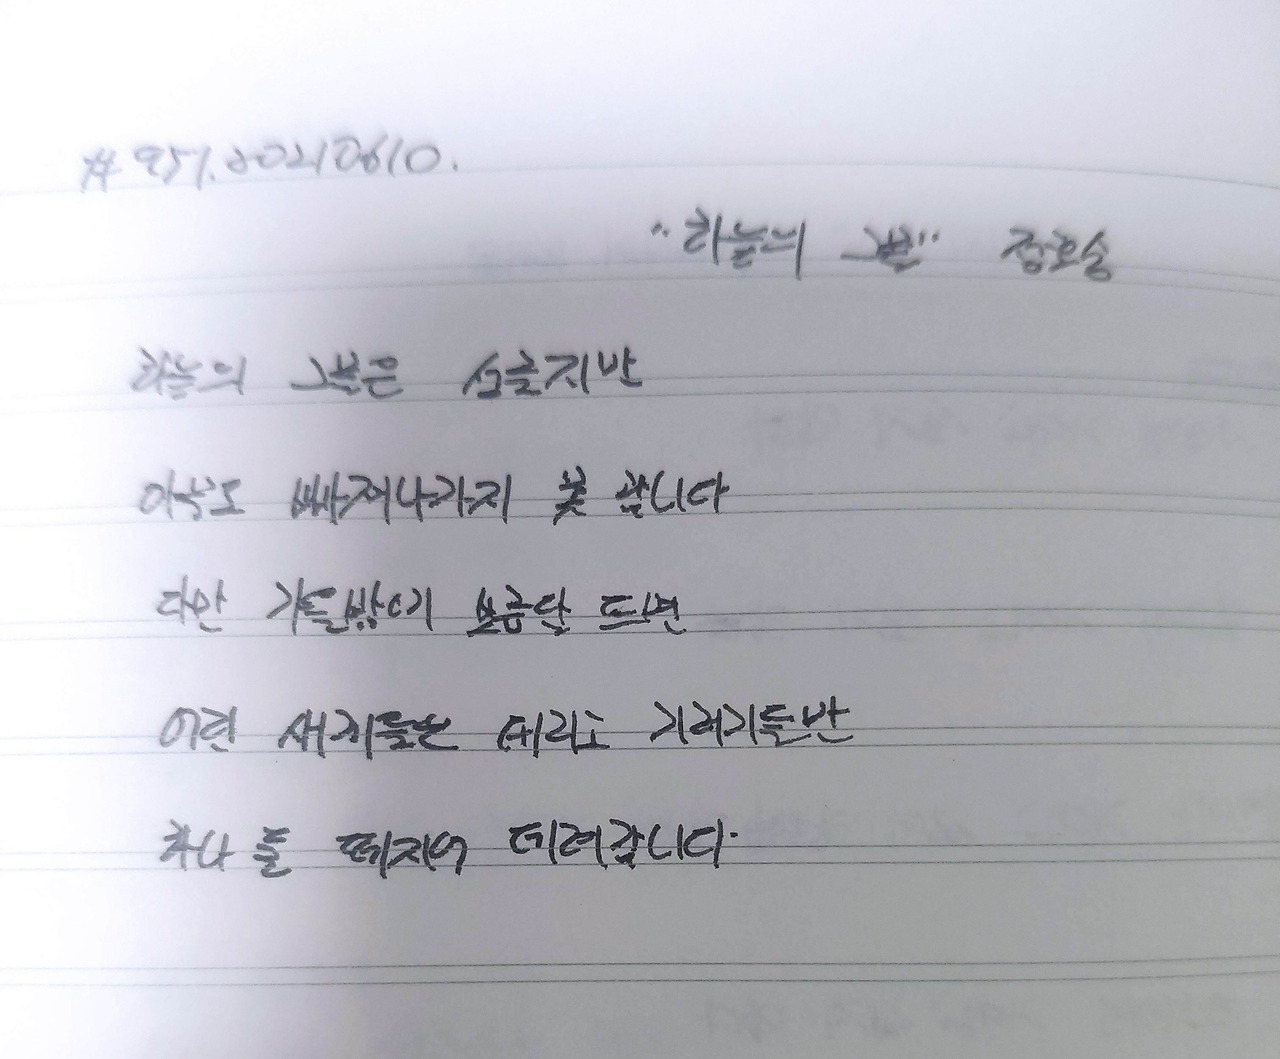 #951.20210610.
"하늘의 그물" 정호승
하늘의 그물은 성글지만
아무도 빠져나가지 못 합니다
다만 가을밤에 보름달 뜨면
어린 새끼들을 데리고 기러기들만
하나 둘 떼지어 데려갑니다.